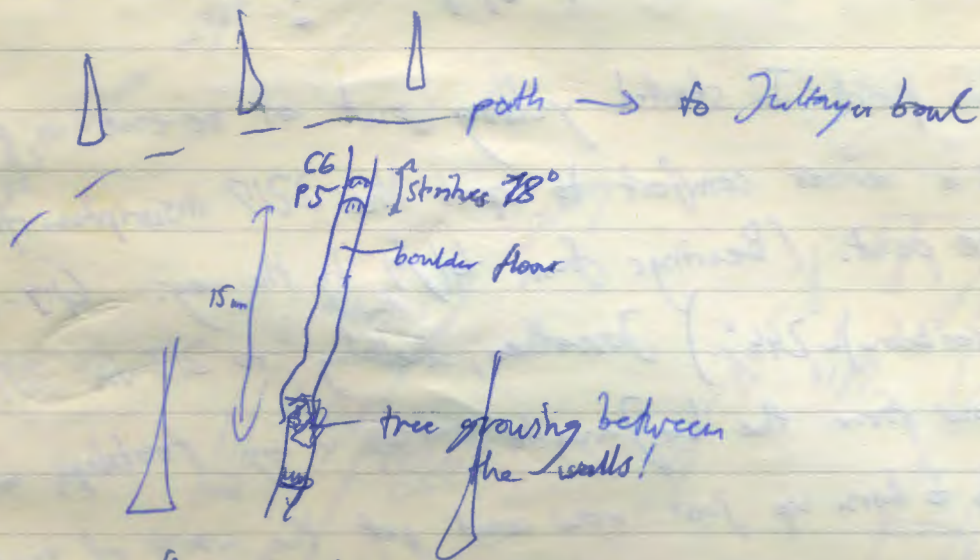 path → to Jultayu bowl
C6
P5 [strikes 78°
boulder floor
15m
tree growing between
the walls!